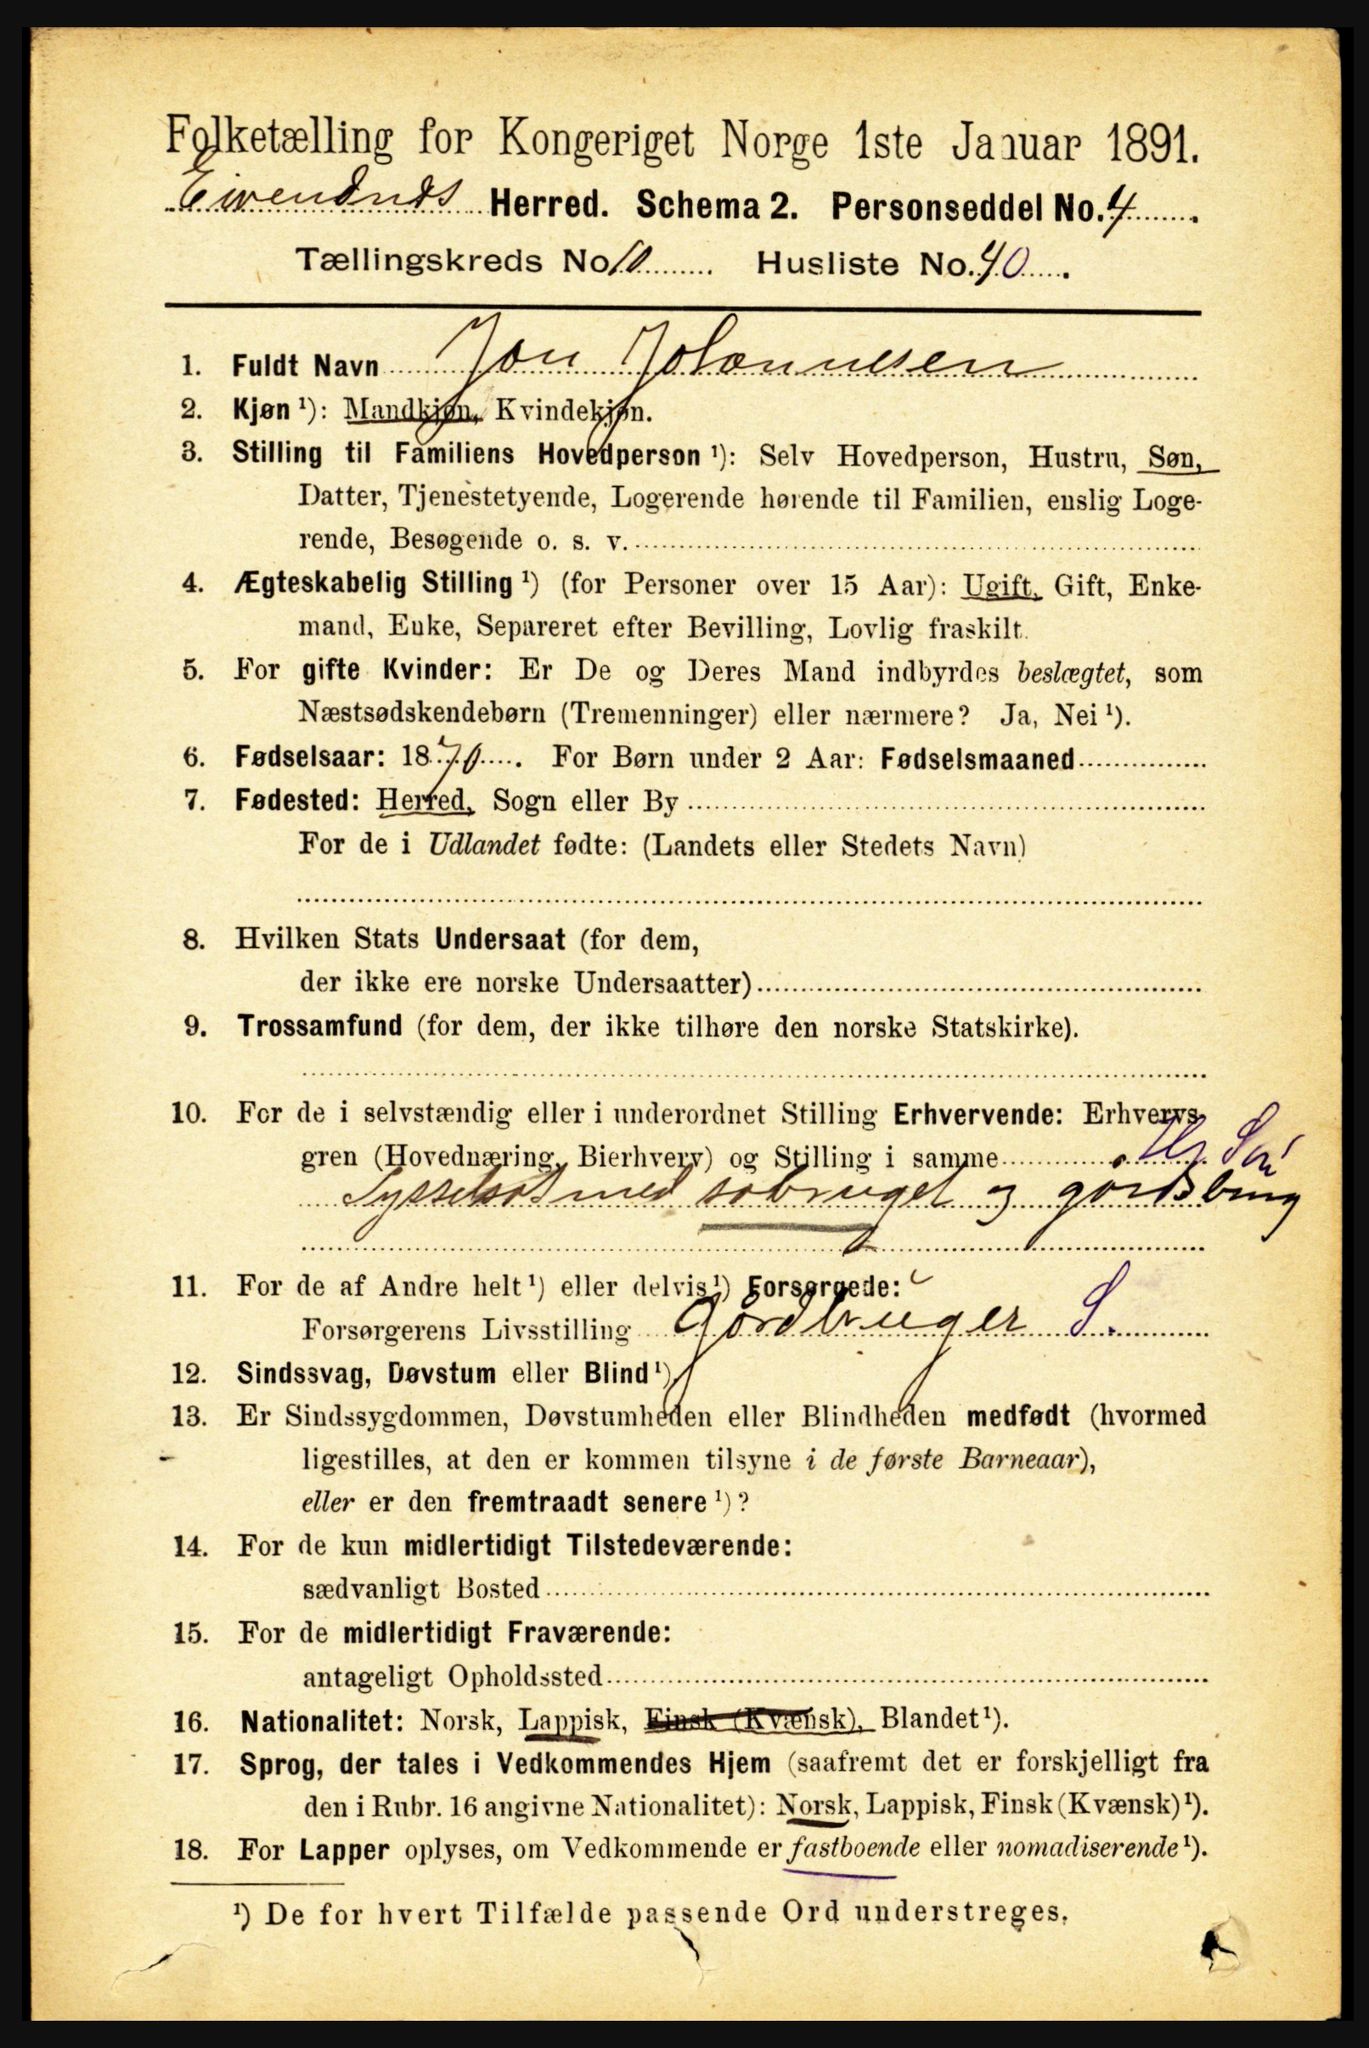 Folketælling for Kongeriget Norge 1ste Januar 1891.
Eivendnds Herred. Schema 2. Personseddel No. 4.
Tællingskreds No 10 Husliste No. 40.
1. Fuldt Navn Jon Johannesen
2. Kjøn ¹): Mandkjøn, Kvindekjøn.
3. Stilling til Familiens Hovedperson ¹): Selv Hovedperson, Hustru, Søn,
Datter, Tjenestetyende, Logerende hørende til Familien, enslig Loge-
rende, Besøgende o. s. v.
4. Ægteskabelig Stilling ¹) (for Personer over 15 Aar): Ugift, Gift, Enke-
mand, Enke, Separeret efter Bevilling, Lovlig fraskilt.
5. For gifte Kvinder: Er De og Deres Mand indbyrdes beslægtet, som
Næstsødskendebørn (Tremenninger) eller nærmere? Ja, Nei ¹).
6. Fødselsaar: 1870. For Børn under 2 Aar: Fødselsmaaned
7. Fødested: Herred, Sogn eller By
For de i Udlandet fødte: (Landets eller Stedets Navn)
8. Hvilken Stats Undersaat (for dem,
der ikke ere norske Undersaatter)
9. Trossamfund (for dem, der ikke tilhøre den norske Statskirke).
10. For de i selvstændig eller i underordnet Stilling Erhvervende: Erhvervs-
gren (Hovednæring, Bierhverv) og Stilling i samme
Sysselsat med sobruget og gordsbrug
11. For de af Andre helt ¹) eller delvis ¹) Forsørgede:
Forsørgerens Livsstilling Gordbruger S.
12. Sindssvag, Døvstum eller Blind ¹).
13. Er Sindssygdommen, Døvstumheden eller Blindheden medfødt (hvormed
ligestilles, at den er kommen tilsyne i de første Barneaar),
eller er den fremtraadt senere ¹)?
14. For de kun midlertidigt Tilstedeværende:
sædvanligt Bosted
15. For de midlertidigt Fraværende:
antageligt Opholdssted
16. Nationalitet: Norsk, Lappisk, Finsk (Kvænsk), Blandet ¹).
17. Sprog, der tales i Vedkommendes Hjem (saafremt det er forskjelligt fra
den i Rubr. 16 angivne Nationalitet): Norsk, Lappisk, Finsk (Kvænsk) ¹).
18. For Lapper oplyses, om Vedkommende er fastboende eller nomadiserende ¹).
¹) De for hvert Tilfælde passende Ord understreges.